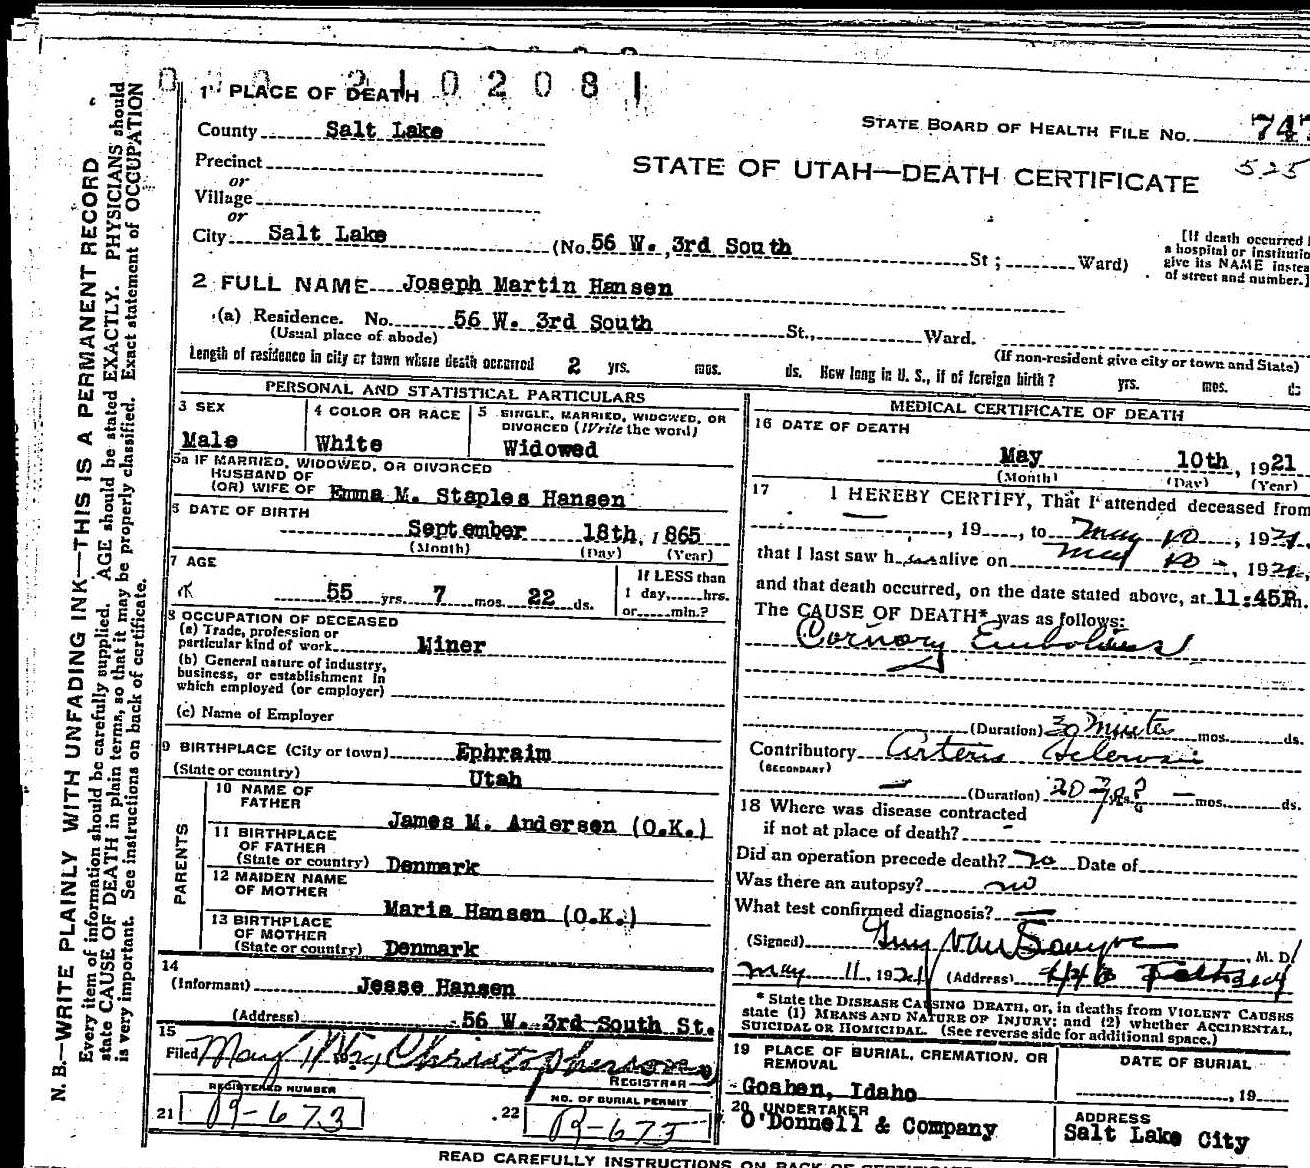 2102081
1 PLACE OF DEATH
STATE BOARD OF HEALTH FILE NO. 747
County Salt Lake
525
Precinct
STATE OF UTAH—DEATH CERTIFICATE
or
Village
or
City Salt Lake (No. 56 W. 3rd South St; Ward)
[If death occurred
a hospital or institutio
give its NAME instea
of street and number.]
2 FULL NAME Joseph Martin Hansen
(a) Residence. No. 56 W. 3rd South St., Ward.
(Usual place of abode)
(If non-resident give city or town and State)
Length of residence in city or town where death occurred 2 yrs. mos. ds. How long in U. S., if of foreign birth? yrs. mos. ds
PERSONAL AND STATISTICAL PARTICULARS
3 SEX
Male
4 COLOR OR RACE
White
5 SINGLE, MARRIED, WIDOWED, OR
DIVORCED (Write the word)
Widowed
5a IF MARRIED, WIDOWED, OR DIVORCED
HUSBAND OF
(OR) WIFE OF Emma M. Staples Hansen
6 DATE OF BIRTH
September 18th, 1865
(Month) (Day) (Year)
7 AGE
55 yrs. 7 mos. 22 ds.
If LESS than
1 day, hrs.
or min.?
8 OCCUPATION OF DECEASED
(a) Trade, profession or
particular kind of work Miner
(b) General nature of industry,
business, or establishment in
which employed (or employer)
(c) Name of Employer
9 BIRTHPLACE (City or town) Ephraim
(State or country) Utah
PARENTS
10 NAME OF
FATHER
James M. Andersen (O.K.)
11 BIRTHPLACE
OF FATHER
(State or country) Denmark
12 MAIDEN NAME
OF MOTHER
Maria Hansen (O.K.)
13 BIRTHPLACE
OF MOTHER
(State or country) Denmark
14
(Informant) Jesse Hansen
(Address) 56 W. 3rd South St.
15
Filed May
REGISTRAR
REGISTERED NUMBER
21 R-673
NO. OF BURIAL PERMIT
22 R-673
MEDICAL CERTIFICATE OF DEATH
16 DATE OF DEATH
May 10th, 1921
(Month) (Day) (Year)
17 I HEREBY CERTIFY, That I attended deceased from
, 19 , to May 10, 1921,
that I last saw h alive on May 10, 1921,
and that death occurred, on the date stated above, at 11:45P m.
The CAUSE OF DEATH* was as follows:
Cornory Embolism
(Duration) 30 Minutes mos. ds.
Contributory Arterio Sclerosis
(SECONDARY)
(Duration) 20 yrs? mos. ds.
18 Where was disease contracted
if not at place of death?
Did an operation precede death? no Date of
Was there an autopsy? no
What test confirmed diagnosis?
(Signed) Guy Van , M. D.
May 11 1921 (Address)
* State the DISEASE CAUSING DEATH, or, in deaths from VIOLENT CAUSES
state (1) MEANS AND NATURE OF INJURY; and (2) whether ACCIDENTAL,
SUICIDAL OR HOMICIDAL. (See reverse side for additional space.)
19 PLACE OF BURIAL, CREMATION, OR
REMOVAL
Goshen, Idaho
DATE OF BURIAL
, 19
20 UNDERTAKER
O'Donnell & Company
ADDRESS
Salt Lake City
READ CAREFULLY INSTRUCTIONS ON BACK OF CERTIFICATE
N. B.—WRITE PLAINLY WITH UNFADING INK—THIS IS A PERMANENT RECORD
Every item of information should be carefully supplied. AGE should be stated EXACTLY. PHYSICIANS should
state CAUSE OF DEATH in plain terms, so that it may be properly classified. Exact statement of OCCUPATION
is very important. See instructions on back of certificate.